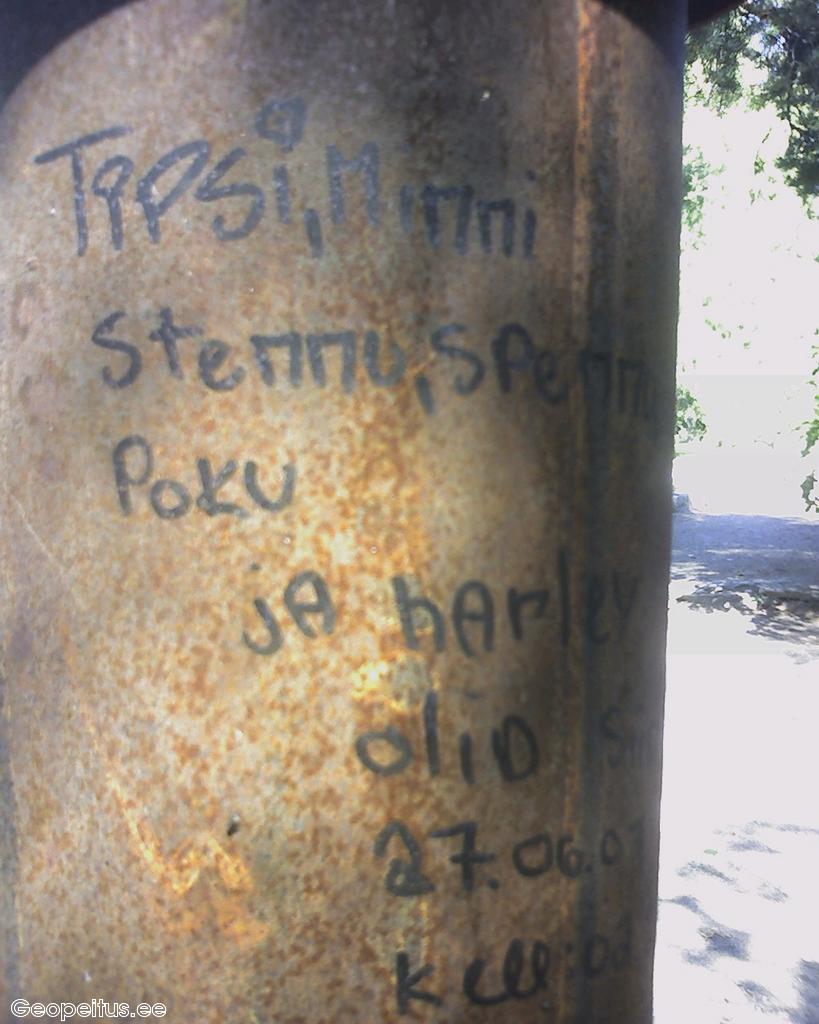 TIPSi, Minni
Stennu, Spennu
Poku
jA hArley
oliD
27.06.07
kell
Geopeitus.ee